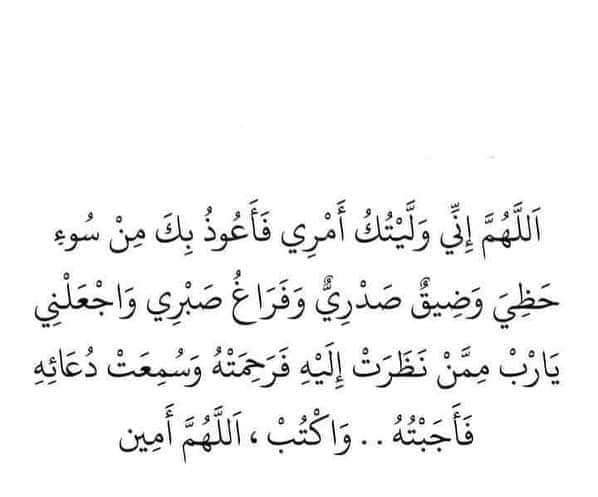 اَللَّهُمَّ إِنِّي وَلَّيْتُكُ أَمْرِي فَأَعُوذُ بِكَ مِنْ سُوءِ
حَظِيَ وَضِيقٌ صَدْرِيٌّ وَفَرَاغُ صَبْرِي وَاجْعَلْنِي
يَارْبْ مِمَّنْ نَظَرَتْ إِلَيْهِ فَرَحِمَتْهُ وَسُمِعَتْ دُعَائِهِ
فَأَجَبْتُهُ .. وَاكْتُبْ ، اَللَّهُمَّ أَمِين